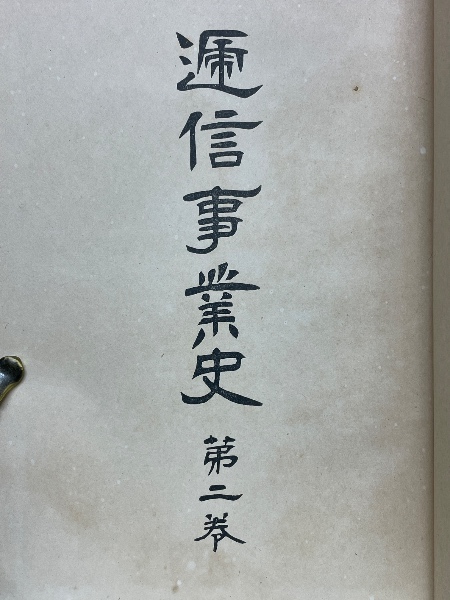 遞信事業史 第二卷